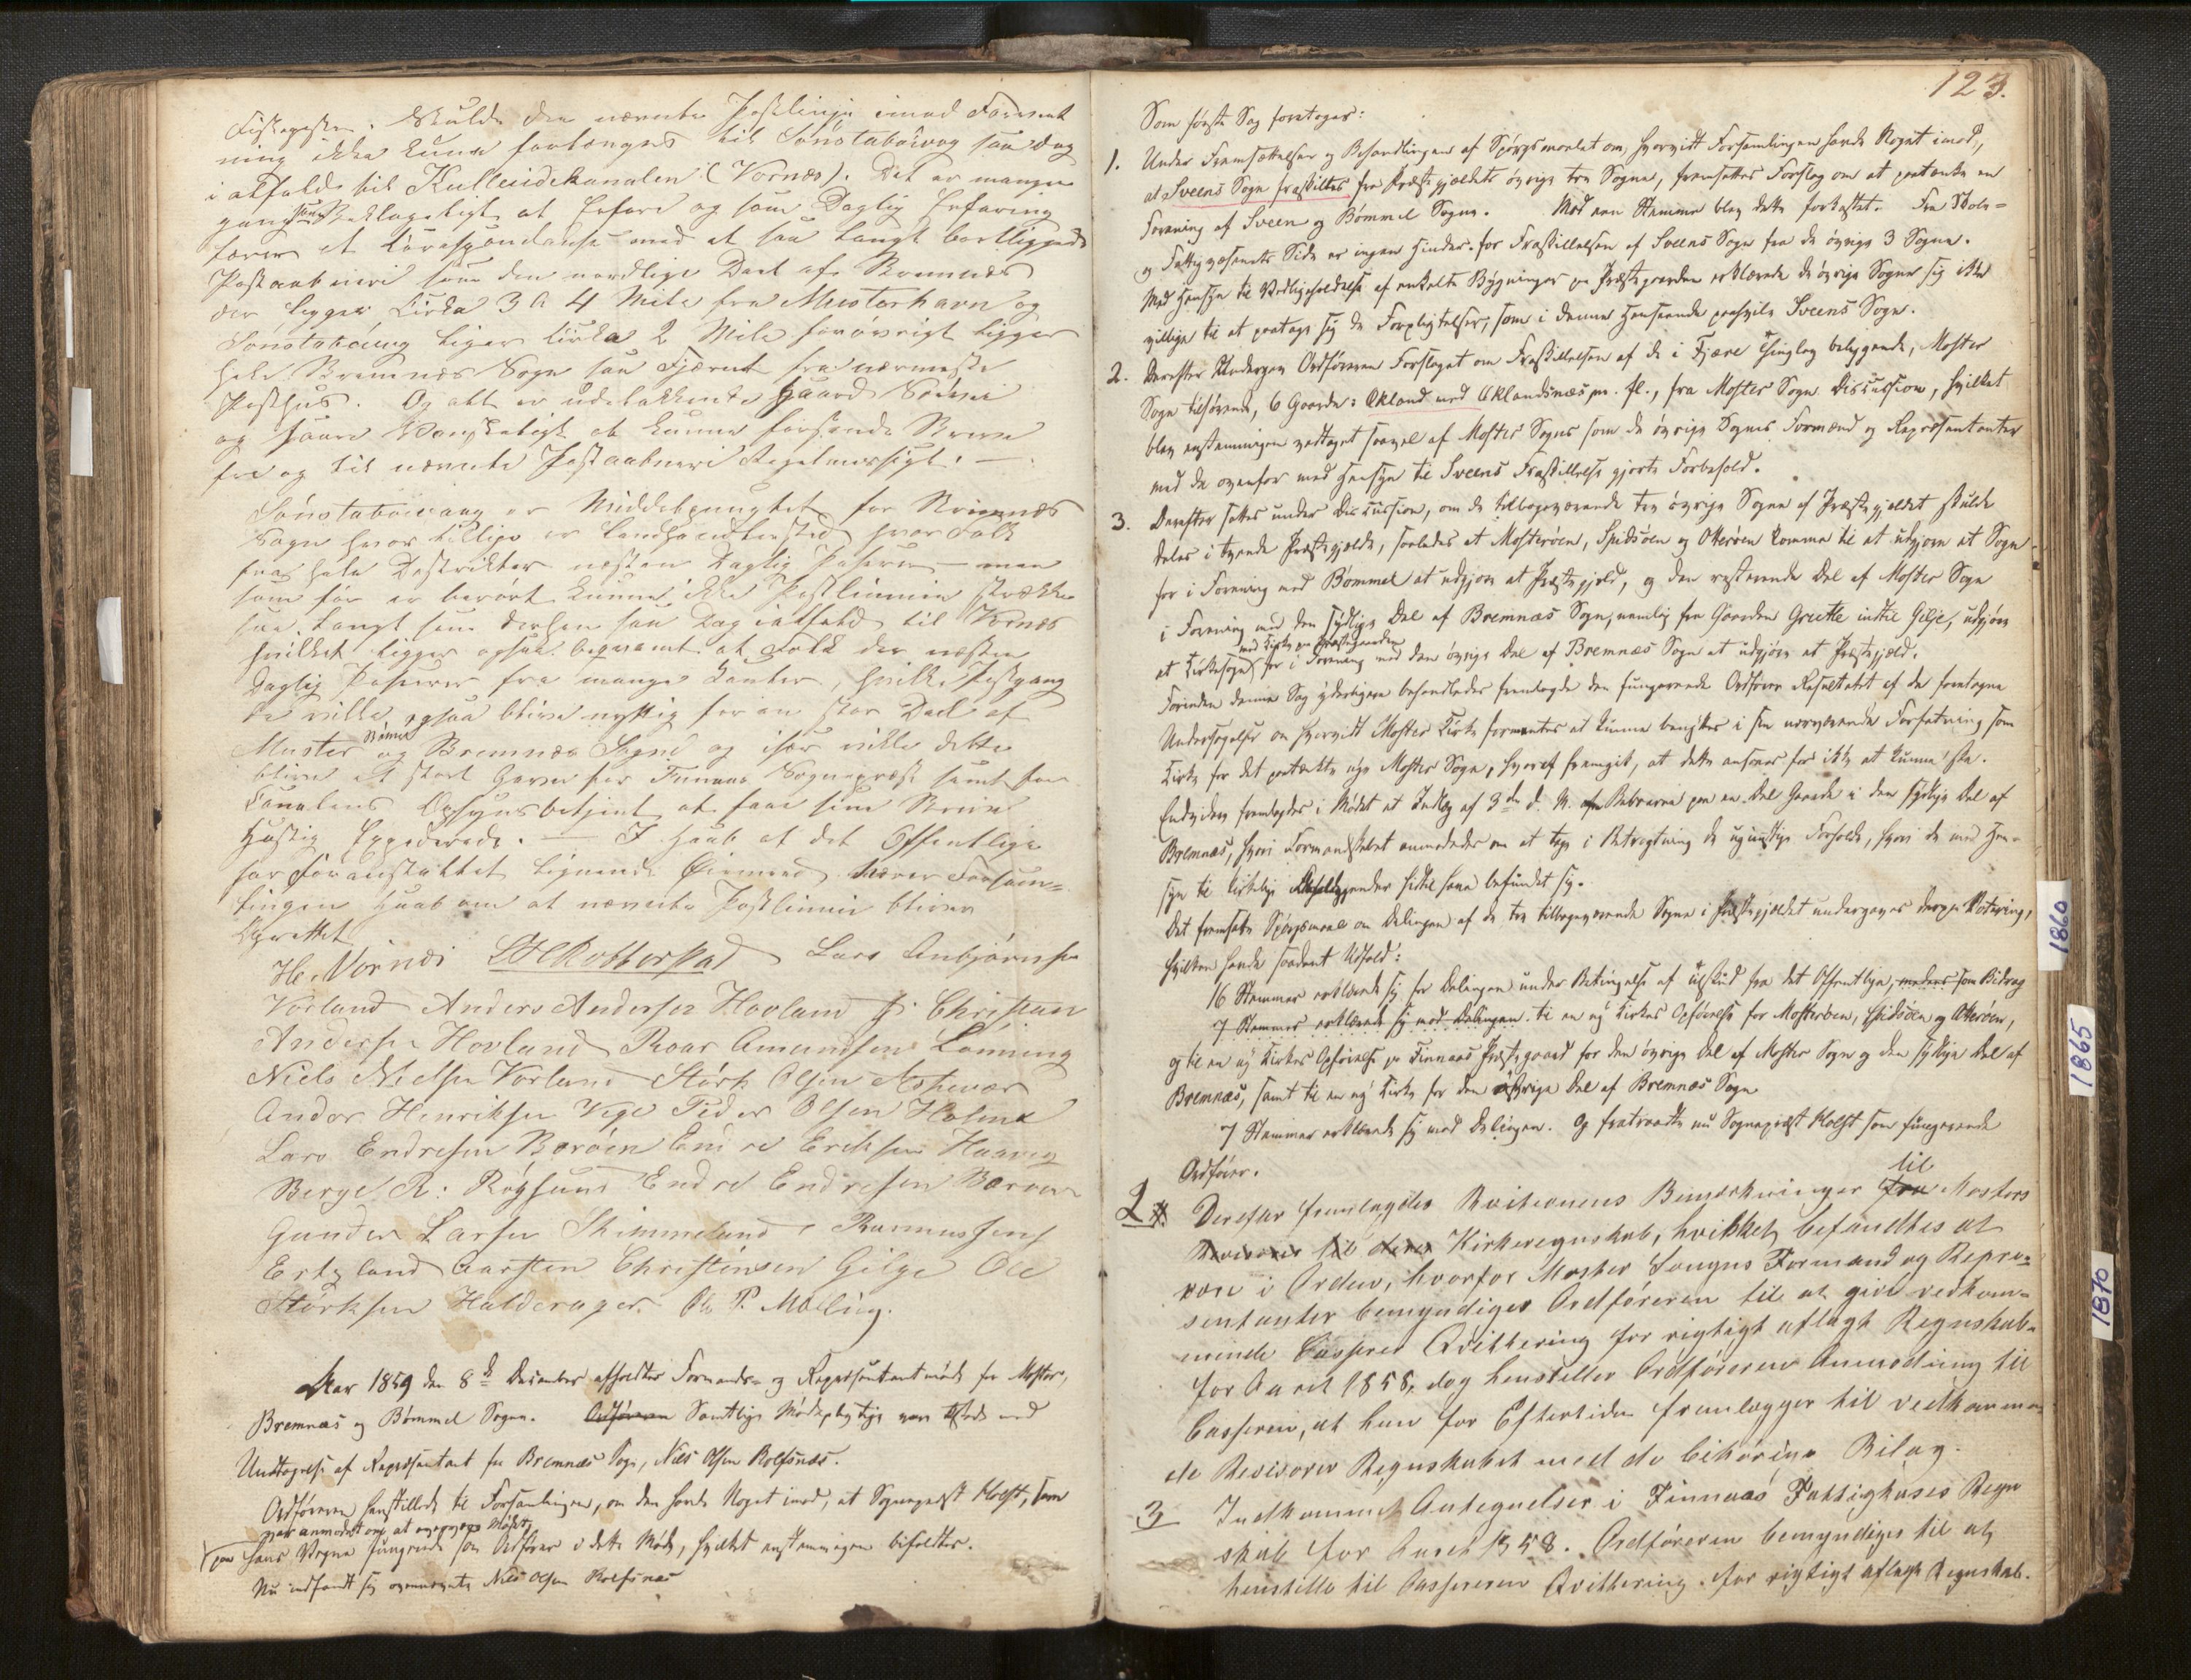 Fiskepester. Skulde den nævnte Postlinje imod Forvent
ning ikke kunne forlænges til Sónstabövog saa dog
i alfald til Kulleseidekanalen (Vornæs). Det er mange
gange saa Beklageligt at Erfare og som Daglig Erfaring
lærer et Korespondanse med et saa langt bortliggende
Postaabneri som den nordlige Deel af Bremnæs
der ligger Cirka 3 a 4 Mile fra Mosterhavn og
Sónstabövog liger cirka 2 Mile forövrigt ligger
hele Bremnæs Sogn saa Fjærnt fra nærmeste
Posthus. Og alt er udelukkende haard Söevei
og saare Vanskeligt at kunne forsende Breve
fra og til nævnte Postaabneri Regelmessigt. —
Sónstabövaag er Middelpungtet for Bremnæs
Sogn hvor tillige er Landhandlersted hvor Folk
fra hele Destrikter næsten Daglig Paserer — men
som för er berört kunne ikke Postlinnien strække
saa langt som derhen saa Dog ialfald til Vornæs
hvilket ligger ogsaa beqvæmt at Folk der næsten
Daglig Paserer fra mange Kanter, hvilke Postgang
da ville ogsaa blive nyttig for en stor Deel af
Bömmel
Muster og Bremnæs Sogne og især ville dette
blive et stort Gavn for Finnaas Sognepræst samt for
Canalens Opsynsbetjent at faae sine Breve
Hastig Expederede. — I Haab at det Offentlige
har foranstaltet lignende Öiemed nærer Forsam-
lingen Haab om at nævnte Postlinnie bliver
Oprettet
H. Vornæs LHRobberstad Lars Anbjörnsen
Vorland Anders Andersen Hovland J. Christian
Andersen Hovland Roar Amundsen Lönning
Niels Nielsen Vorland Störk Olsen Aspevær
Ander Henriksen Vege Peder Olsen Holme
Lars Endresen Beröen Endre Eriksen Haavig
Berge R: Rögsund Endre Endresen Beröen
Gunder Larsen Skimmeland Rasmus Jens
Eskeland Carsten Christensen Gilge Ole
Störksen Halderager. Ole P. Mælin.
Aar 1859 den 8de December afholdtes Formands- og Repræsentantmöde for Moster,
Bremnæs og Bömmel Sogne. Ordföreren Samtlige Mödepligtige vare tilstede med
Undtagelse af Repræsentant for Bremnæs Sogn, Niels Olsen Rolfsnæs.
Ordföreren henstillede til Forsamlingen, om den havde Noget imod, at Sognepræst Holst, som
var anmodet om at overvære Mödet,
paa hans Vegne fungerede som Ordförer i dette Möde, hvilket enstemmigen bifaldtes.
Nu indfandt sig ovennævnte Niels Olsen Rolfsnæs
123.
Som förste Sag foretages:
1. Under Fremsættelsen og Behandlingen af Spörgsmaalet om, hvorvidt Forsamlingen havde Noget imod,
at Sveens Sogn fraskiltes fra Præstegjældets övrige tre Sogne, fremsattes Forslag om at paatænke en
Forening af Sveen og Bömmel Sogne. Med een Stemme blev dette forkastet. Fra Skole-
og Fattigvæsenets Side er ingen Hinder for Fraskillelsen af Sveens Sogn fra de övrige 3 Sogne.
Med Hensyn til Vedligeholdelse af enkelte Bygninger paa Præstegaarden erklærede de övrige Sogne sig ikke
villige til at paatage sig de Forpligtelser, som i denne Henseende paahvile Sveens Sogn.
2. Derefter Undergav Ordföreren Forslaget om Fraskillelsen af de i Fjære Thinglag beliggende, Moster
Sogn tilhörende, 6 Gaarde: Økland med Øklandsnæs m. fl., fra Moster Sogn Discussion, hvilket
blev enstemmigen vedtaget saavel af Moster Sogns som de övrige Sognes Formænd og Repræsentanter
med de ovenfor med Hensyn til Sveens Fraskillelse gjorte Forbehold.
3. Derefter sattes under Discussion, om de tilbageværende tre övrige Sogne af Præstegjeldet skulde
deles i tvende Præstegjælde, saaledes at Mosteröen, Spidsöen og Otteröen komme til at udgjöre et Sogn
for i Forening med Bömmel at udgjöre et Præstegjeld, og den resterende Del af Moster Sogn
i Forening med den sydlige Del af Bremnæs Sogn, nemlig fra Gaarden Grutle indtil Gilje, udgjöre
med Kirke paa Præstegaarden
et Kirkesogn for i Forening med den övrige Del af Bremnæs Sogn at udgjöre et Præstegjæld.
Forinden denne Sag yderligere behandledes fremlagde den fungerende Ordförer Resultatet af de foretagne
Undersögelser om hvorvidt Moster Kirke formentes at kunne benyttes i sin nærværende Forfatning som
Kirke for det paatænkte nye Moster Sogn, hvoraf fremgik, at dette ansees for ikke at kunne ske.
Endvidere fremlagdes i Mödet et Indlæg af 3die d. M. fra Beboerne paa en Del Gaarde i den sydlige Del af
Bremnæs, hvori Formandskabet anmodedes om at tage i Betragtning de ugunstige Forholde, hvori de med Hen-
syn til kirkelige hidtil have befundet sig.
Det fremsatte Spörgsmaal om Delingen af de tre tilbageværende Sogne i Præstegjeldet undergaves derpaa Votering,
hvilken havde saadant Udfald:
16 Stemmer erklærede sig for Delingen under Betingelse af Tilskud fra det Offentlige, som Bidrag
7 Stemmer erklærede sig mod Delingen. til en ny Kirkes Opförelse for Mosteröen, Spidsöen og Otteröen,
og til en ny Kirkes Opförelse paa Finnaas Præstegaard for den övrige Del af Moster Sogn og den sydlige Del af
Bremnæs, samt til en ny Kirke for den övrige Del af Bremnæs Sogn
7 Stemmer erklærede sig mod Delingen. Og fratraadte nu Sognepræst Holst som fungerende
Ordförer.
til
2. Derefter fremlagdes Revisionens Bemærkninger fra Mosters
Revisorer til deres Kirkeregnskab, hvilket befandtes at
være i Orden, hvorfor Moster Sougns Formænd og Repræ-
sentanter bemyndiges Ordföreren til at give vedkom-
mende Casserer Qvittering for rigtigt aflagt Regnskab
for Aaret 1858, dog henstiller Ordföreren Anmodning til
Cassereren, at han for Eftertiden fremlægger til vedkommen-
de Revisorer Regnskabet med de behörige Bilag.
3 Indkommet Antegnelser i Finnaas Fattigkases Regn
skab for Aaret 1858. Ordföreren bemyndiges til at
henstille til Cassereren Qvittering for rigtigt aflagt Regnskab.
1860
1865
1870